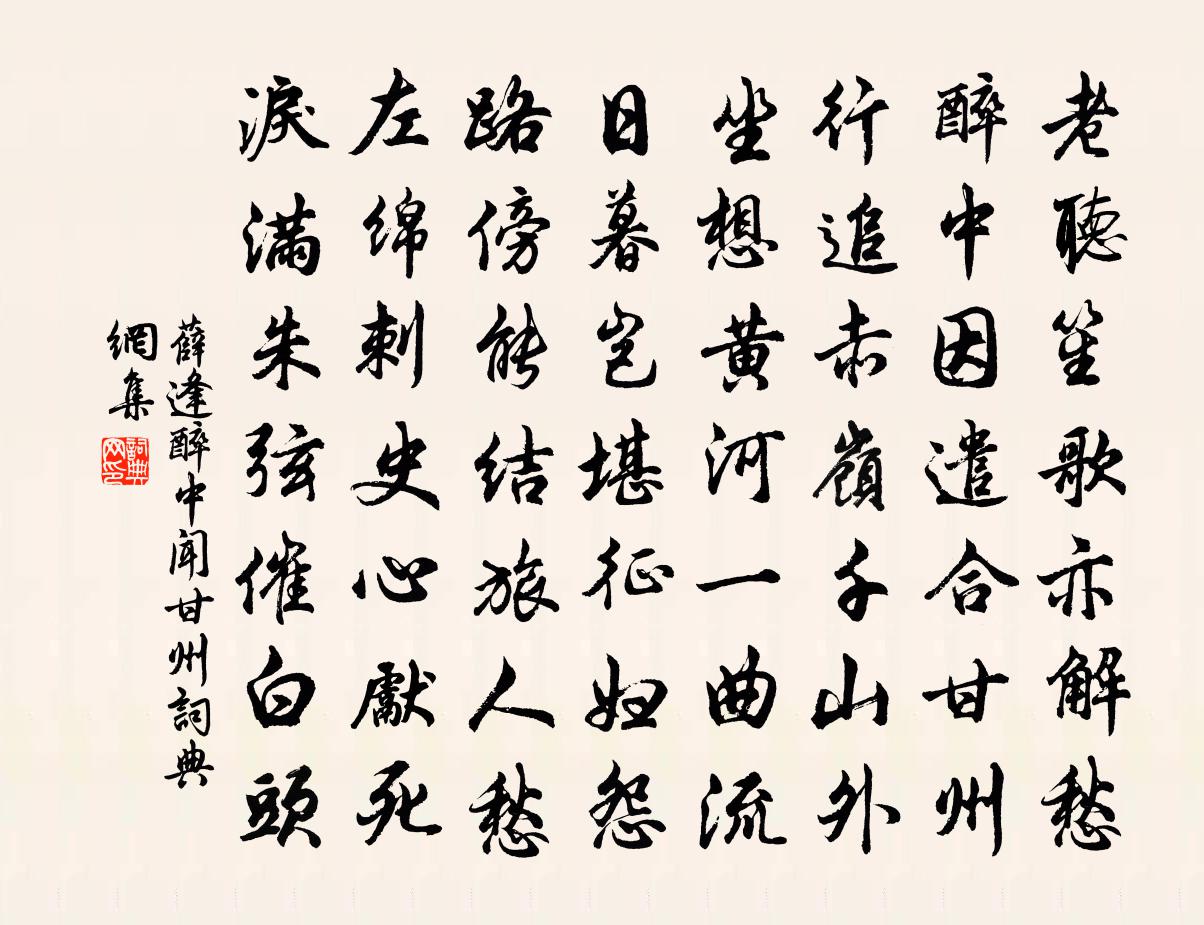 老聽笙歌亦解愁
醉中因遣合甘州
行追赤嶺千山外
坐想黃河一曲流
日暮豈堪征婦怨
路傍能結旅人愁
左綿刺史心獻死
淚滿朱弦催白頭
薛逢醉中聞甘州詞典
網集
詞典網印